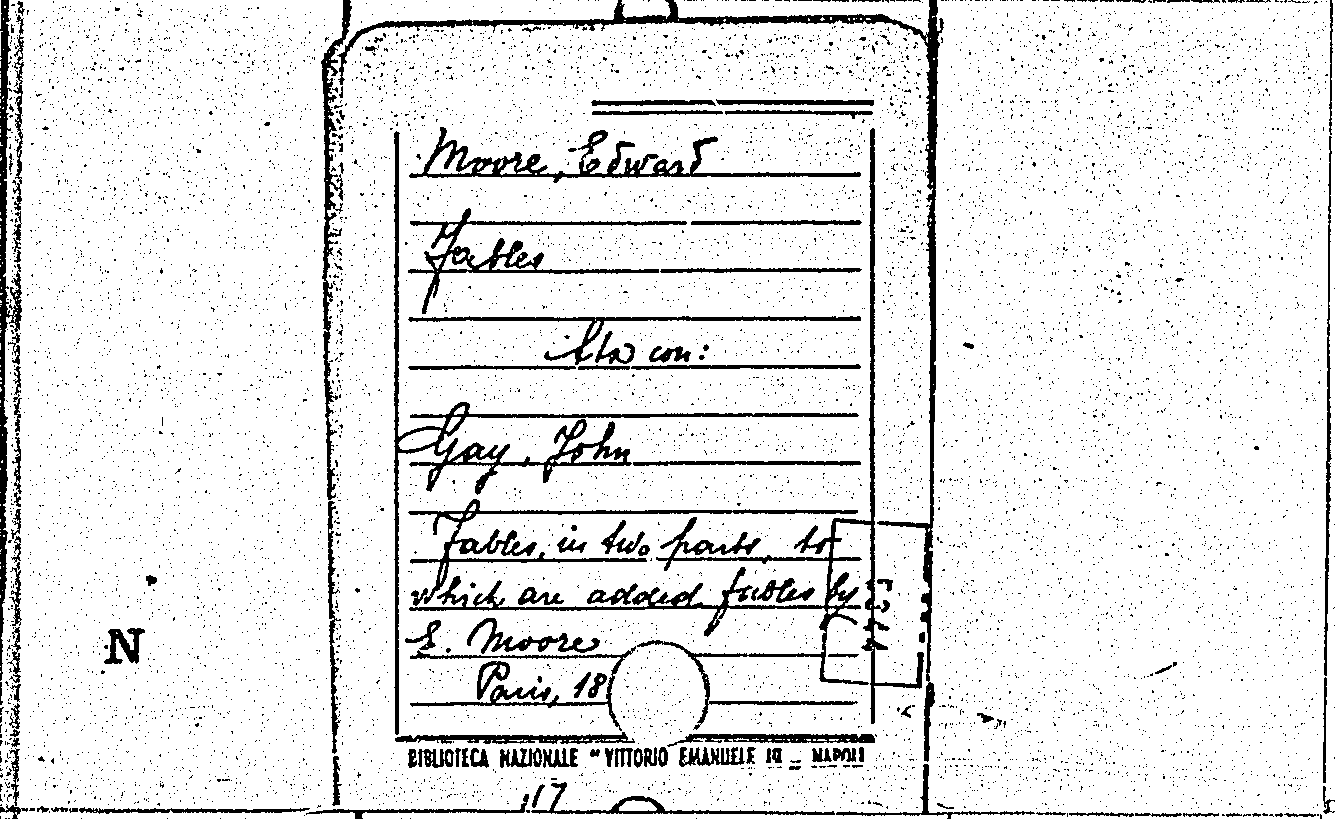 Moore, Edward
Fables
Sta con:
Gay, John
Fables, in two parts, to
which are added fables by
E. Moore
Paris, 18
N
BIBLIOTECA NAZIONALE "VITTORIO EMANUELE III _ NAPOLI
117